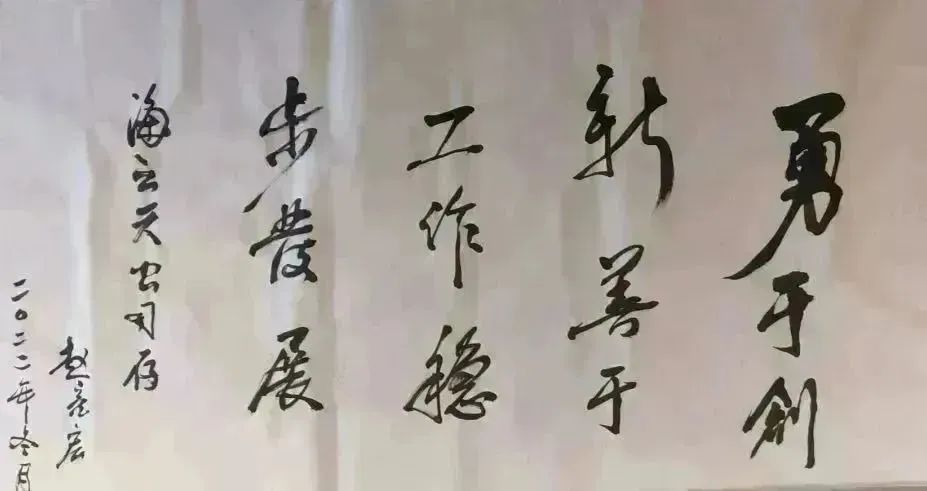 勇于創
新善于
工作稳
步發展
海云天公司存
赵亮宏
二〇二二年冬月